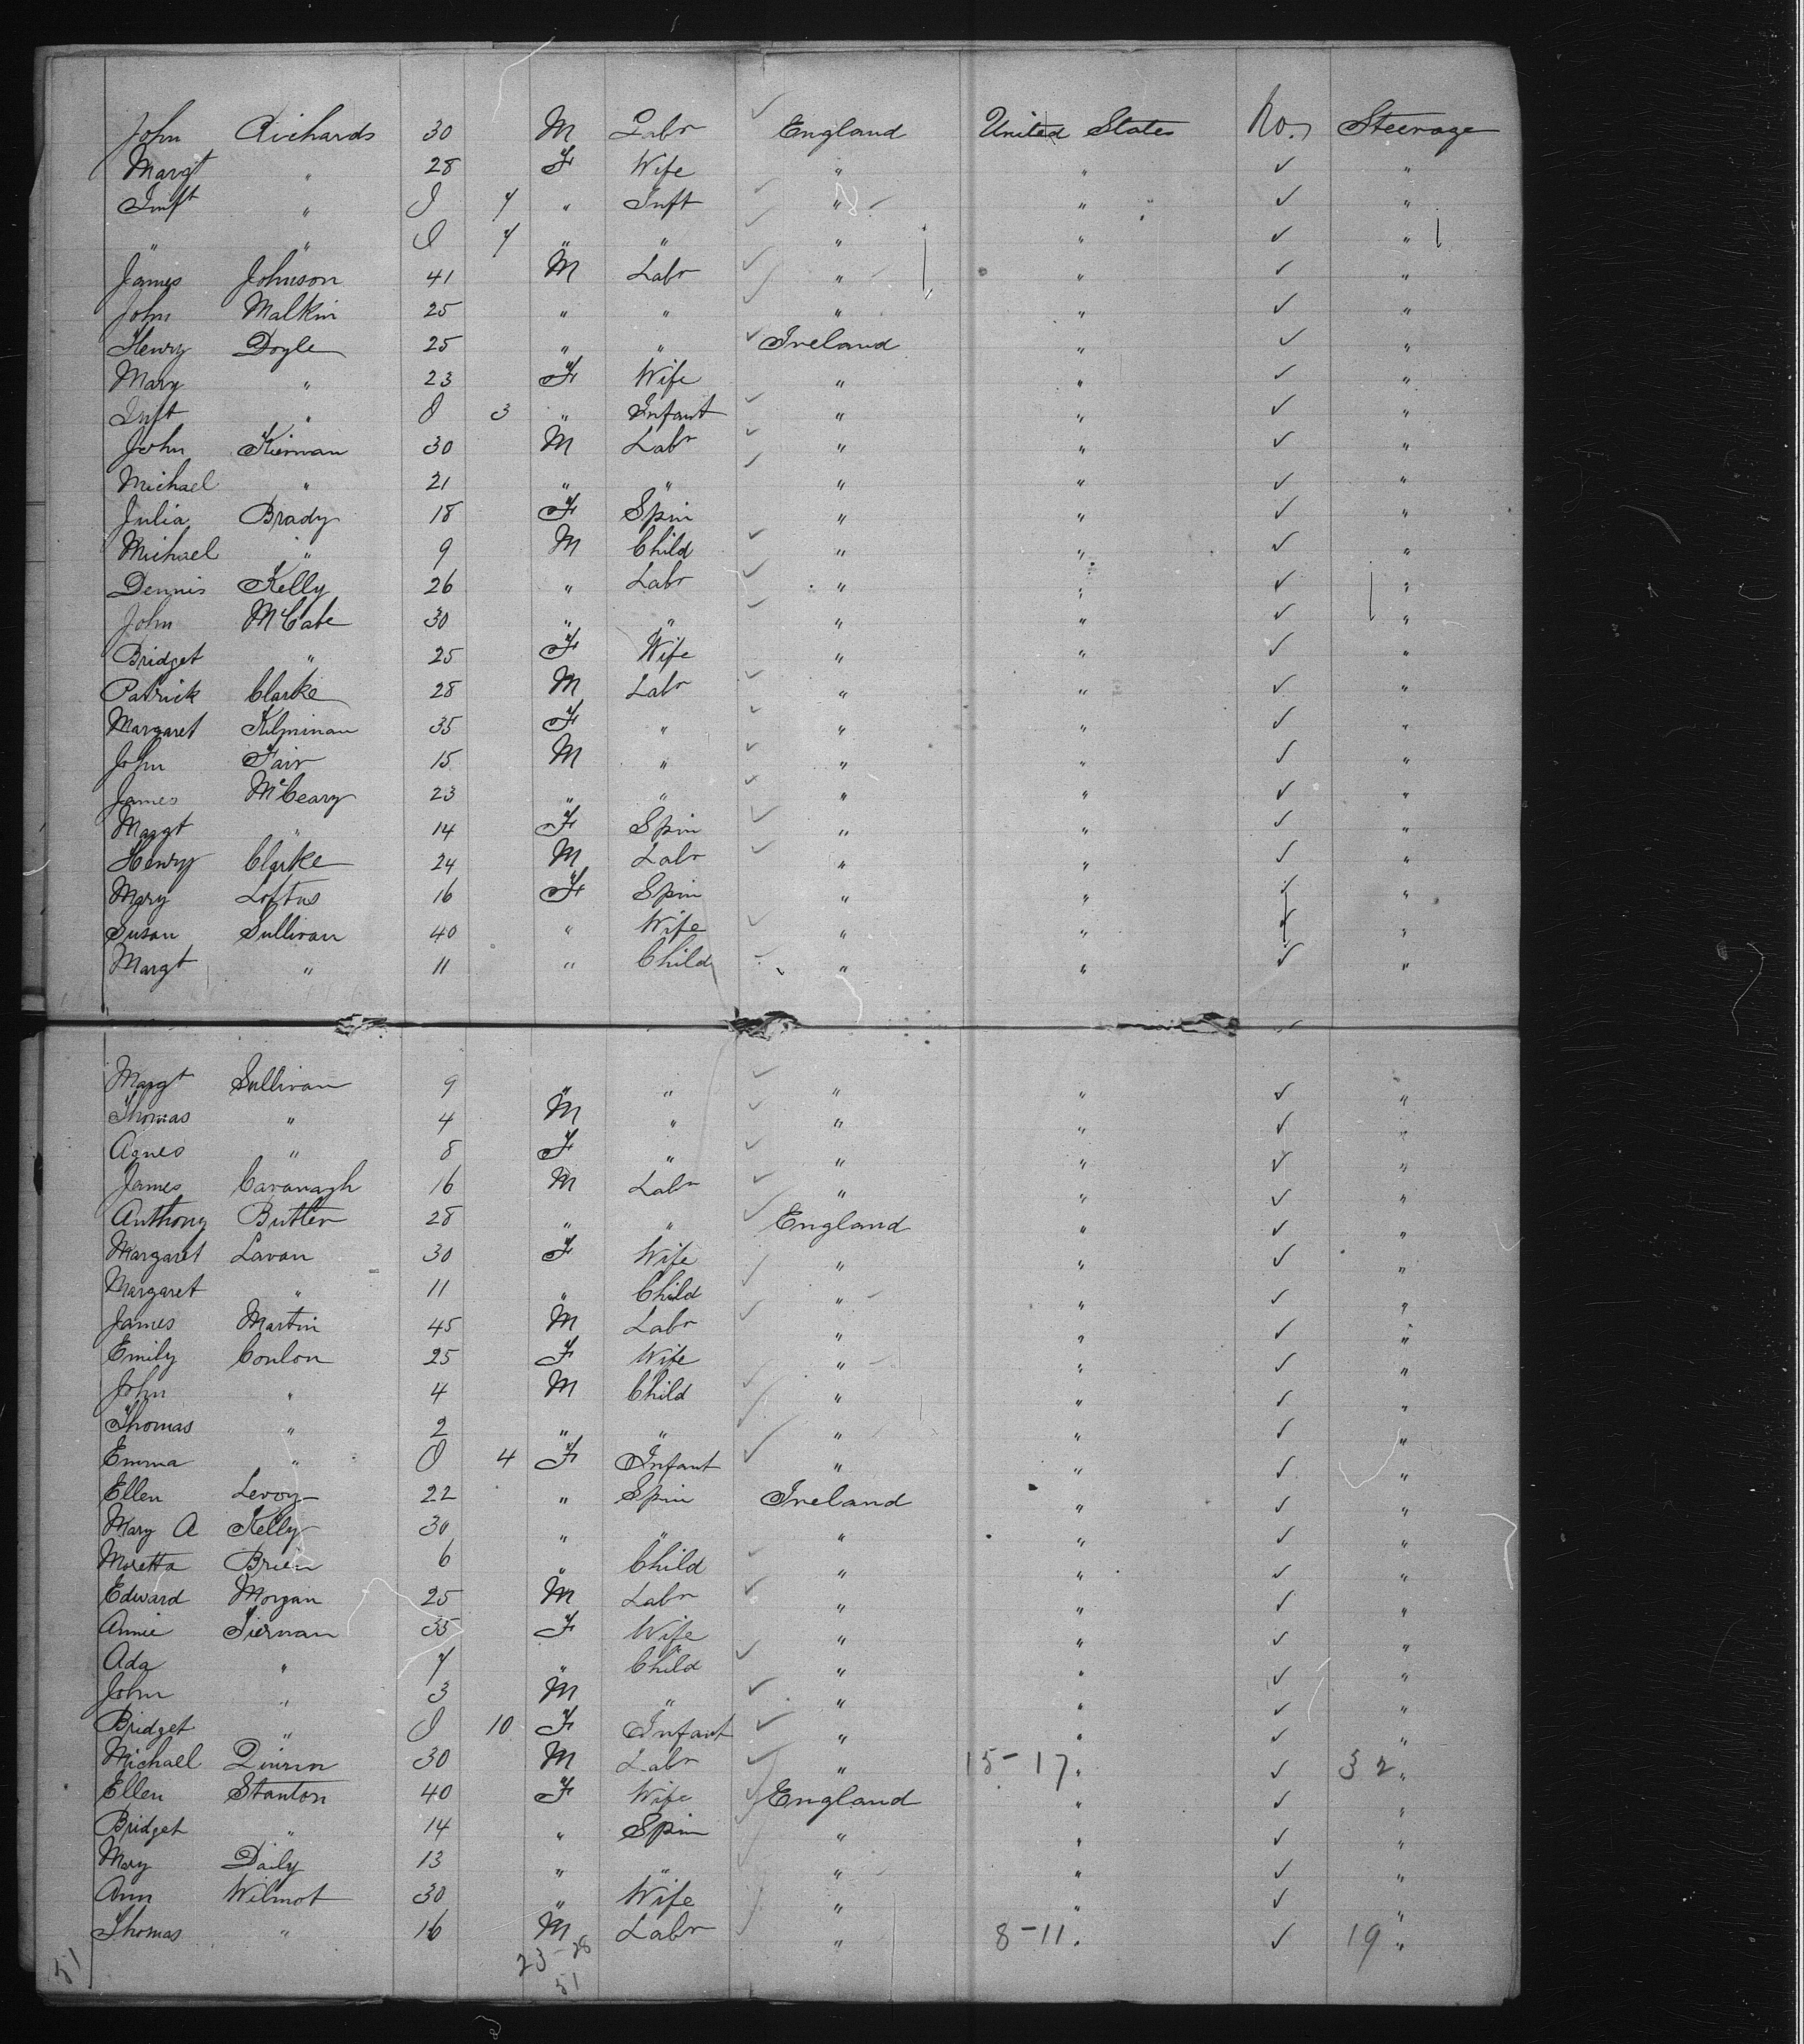 John Richards 30 M Labr England United States No. Steerage
Margt " 28 F Wife " " ✓ "
Inft " 0 7 " Inft " " ✓ "
" " 0 7 " " " " ✓ "
James Johnson 41 M Labr " " ✓ "
John Malkin 25 " " " " ✓ "
Henry Doyle 25 " " Ireland " ✓ "
Mary " 23 F Wife " " ✓ "
Inft " 0 3 " Infant " " ✓ "
John Kiernan 30 M Labr " " ✓ "
Michael " 21 " " " " ✓ "
Julia Brady 18 F Spin " " ✓ "
Michael " 9 M Child " " ✓ "
Dennis Kelly 26 " Labr " " ✓ "
John McCabe 30 " " " " ✓ "
Bridget " 25 F Wife " " ✓ "
Patrick Clarke 28 M Labr " " ✓ "
Margaret 35 F " " " ✓ "
John Fair 15 M " " " ✓ "
James McCeary 23 " " " " ✓ "
Margt " 14 F Spin " " ✓ "
Henry Clarke 24 M Labr " " ✓ "
Mary Loftus 16 F Spin " " ✓ "
Susan Sullivan 40 " Wife " " ✓ "
Margt " 11 " Child " " ✓ "
Margt Sullivan 9 " " " " ✓ "
Thomas " 4 M " " " ✓ "
Agnes " 8 F " " " ✓ "
James Cavanagh 16 M Labr " " ✓ "
Anthony Butler 28 " " England " ✓ "
Margaret Lavan 30 F Wife " " ✓ "
Margaret " 11 " Child " " ✓ "
James Martin 45 M Labr " " ✓ "
Emily Conlon 25 F Wife " " ✓ "
John " 4 M Child " " ✓ "
Thomas " 2 " " " " ✓ "
Emma " 0 4 F Infant " " ✓ "
Ellen Leroy 22 " Spin Ireland " ✓ "
Mary A Kelly 30 " " " " ✓ "
Moretta Brien 6 " Child " " ✓ "
Edward Morgan 25 M Labr " " ✓ "
Annie Tiernan 35 F Wife " " ✓ "
Ada " 7 " Child " " ✓ "
John " 3 M " " " ✓ "
Bridget " 0 10 F Infant " " ✓ "
Michael Quinn 30 M Labr " 15-17 " ✓ 32 "
Ellen Stanton 40 F Wife England " ✓ "
Bridget " 14 " Spin " " ✓ "
Mary Daily 13 " " " " ✓ "
Ann Wilmot 30 " Wife " " ✓ "
Thomas " 16 M Labr " 8-11 " ✓ 19 "
51 23-28
51